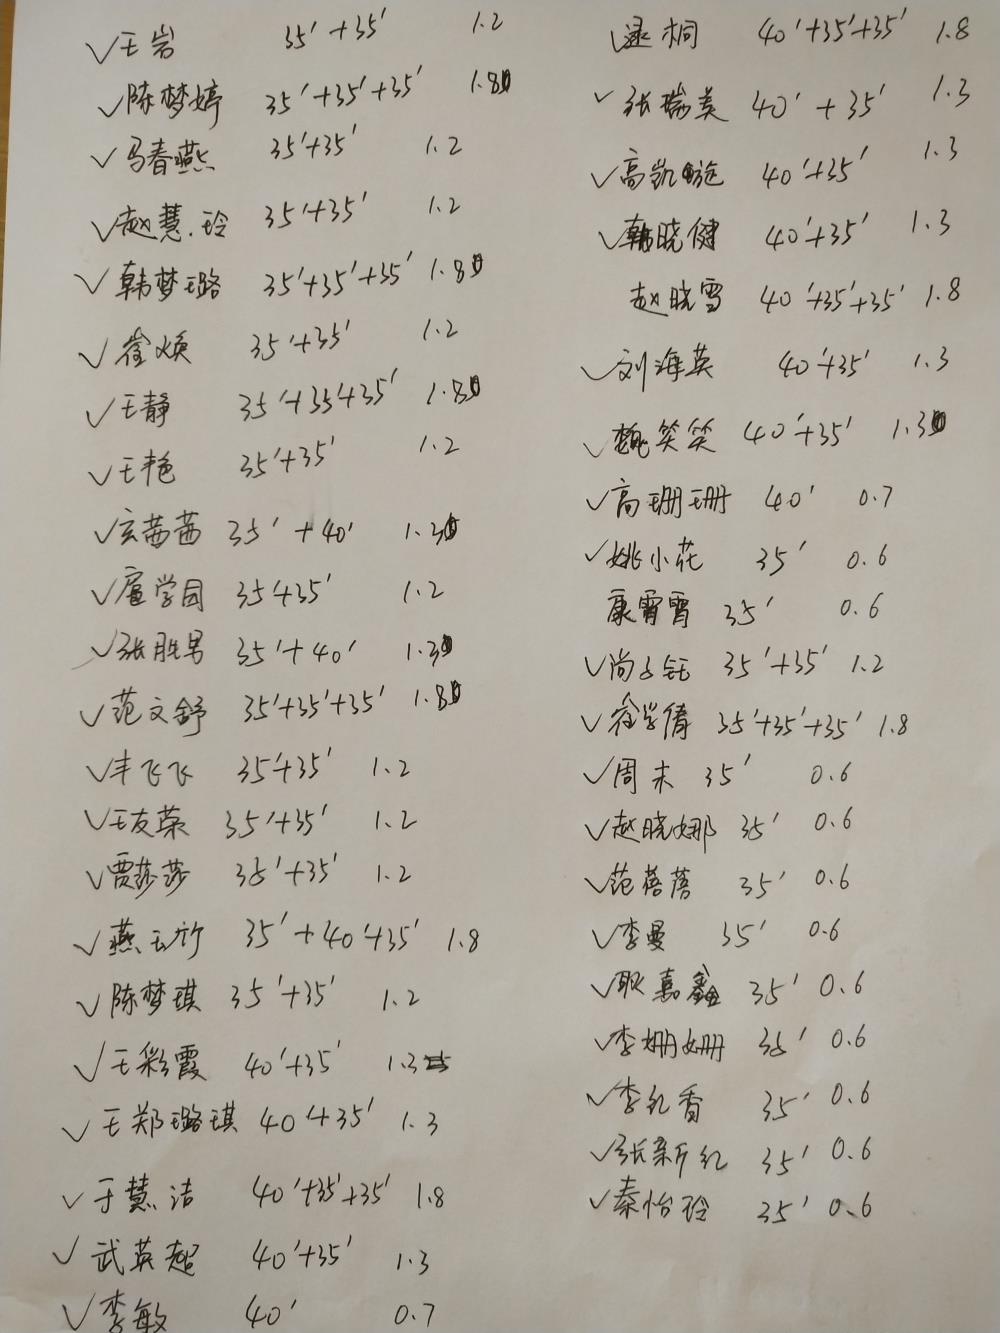 ✓王岩 35′+35′ 1.2
✓陈梦婷 35′+35′+35′ 1.8
✓马春燕 35′+35′ 1.2
✓赵慧玲 35′+35′ 1.2
✓韩梦璐 35′+35′+35′ 1.8
✓崔焕 35′+35′ 1.2
✓王静 35′+35′+35′ 1.8
✓王艳 35′+35′ 1.2
✓玄茜茜 35′+40′ 1.3
✓扈学园 35′+35′ 1.2
✓张胜男 35′+40′ 1.3
✓范文舒 35′+35′+35′ 1.8
✓丰飞飞 35′+35′ 1.2
✓王友荣 35′+35′ 1.2
✓贾莎莎 35′+35′ 1.2
✓燕云竹 35′+40′+35′ 1.8
✓陈梦琪 35′+35′ 1.2
✓王彩霞 40′+35′ 1.3
✓王郑璐琪 40′+35′ 1.3
✓于慧洁 40′+35′+35′ 1.8
✓武英超 40′+35′ 1.3
✓李敏 40′ 0.7
✓逯桐 40′+35′+35′ 1.8
✓张瑞美 40′+35′ 1.3
✓高凯旋 40′+35′ 1.3
✓韩晓健 40′+35′ 1.3
赵晓雪 40′+35′+35′ 1.8
✓刘海英 40′+35′ 1.3
✓魏笑笑 40′+35′ 1.3
✓高珊珊 40′ 0.7
✓姚小花 35′ 0.6
康霄霄 35′ 0.6
✓尚子钰 35′+35′ 1.2
✓崔学倩 35′+35′+35′ 1.8
✓周末 35′ 0.6
✓赵晓娜 35′ 0.6
✓范蓓蓓 35′ 0.6
✓李曼 35′ 0.6
✓耿嘉鑫 35′ 0.6
✓李姗姗 35′ 0.6
✓李红香 35′ 0.6
✓张新红 35′ 0.6
✓秦怡玲 35′ 0.6